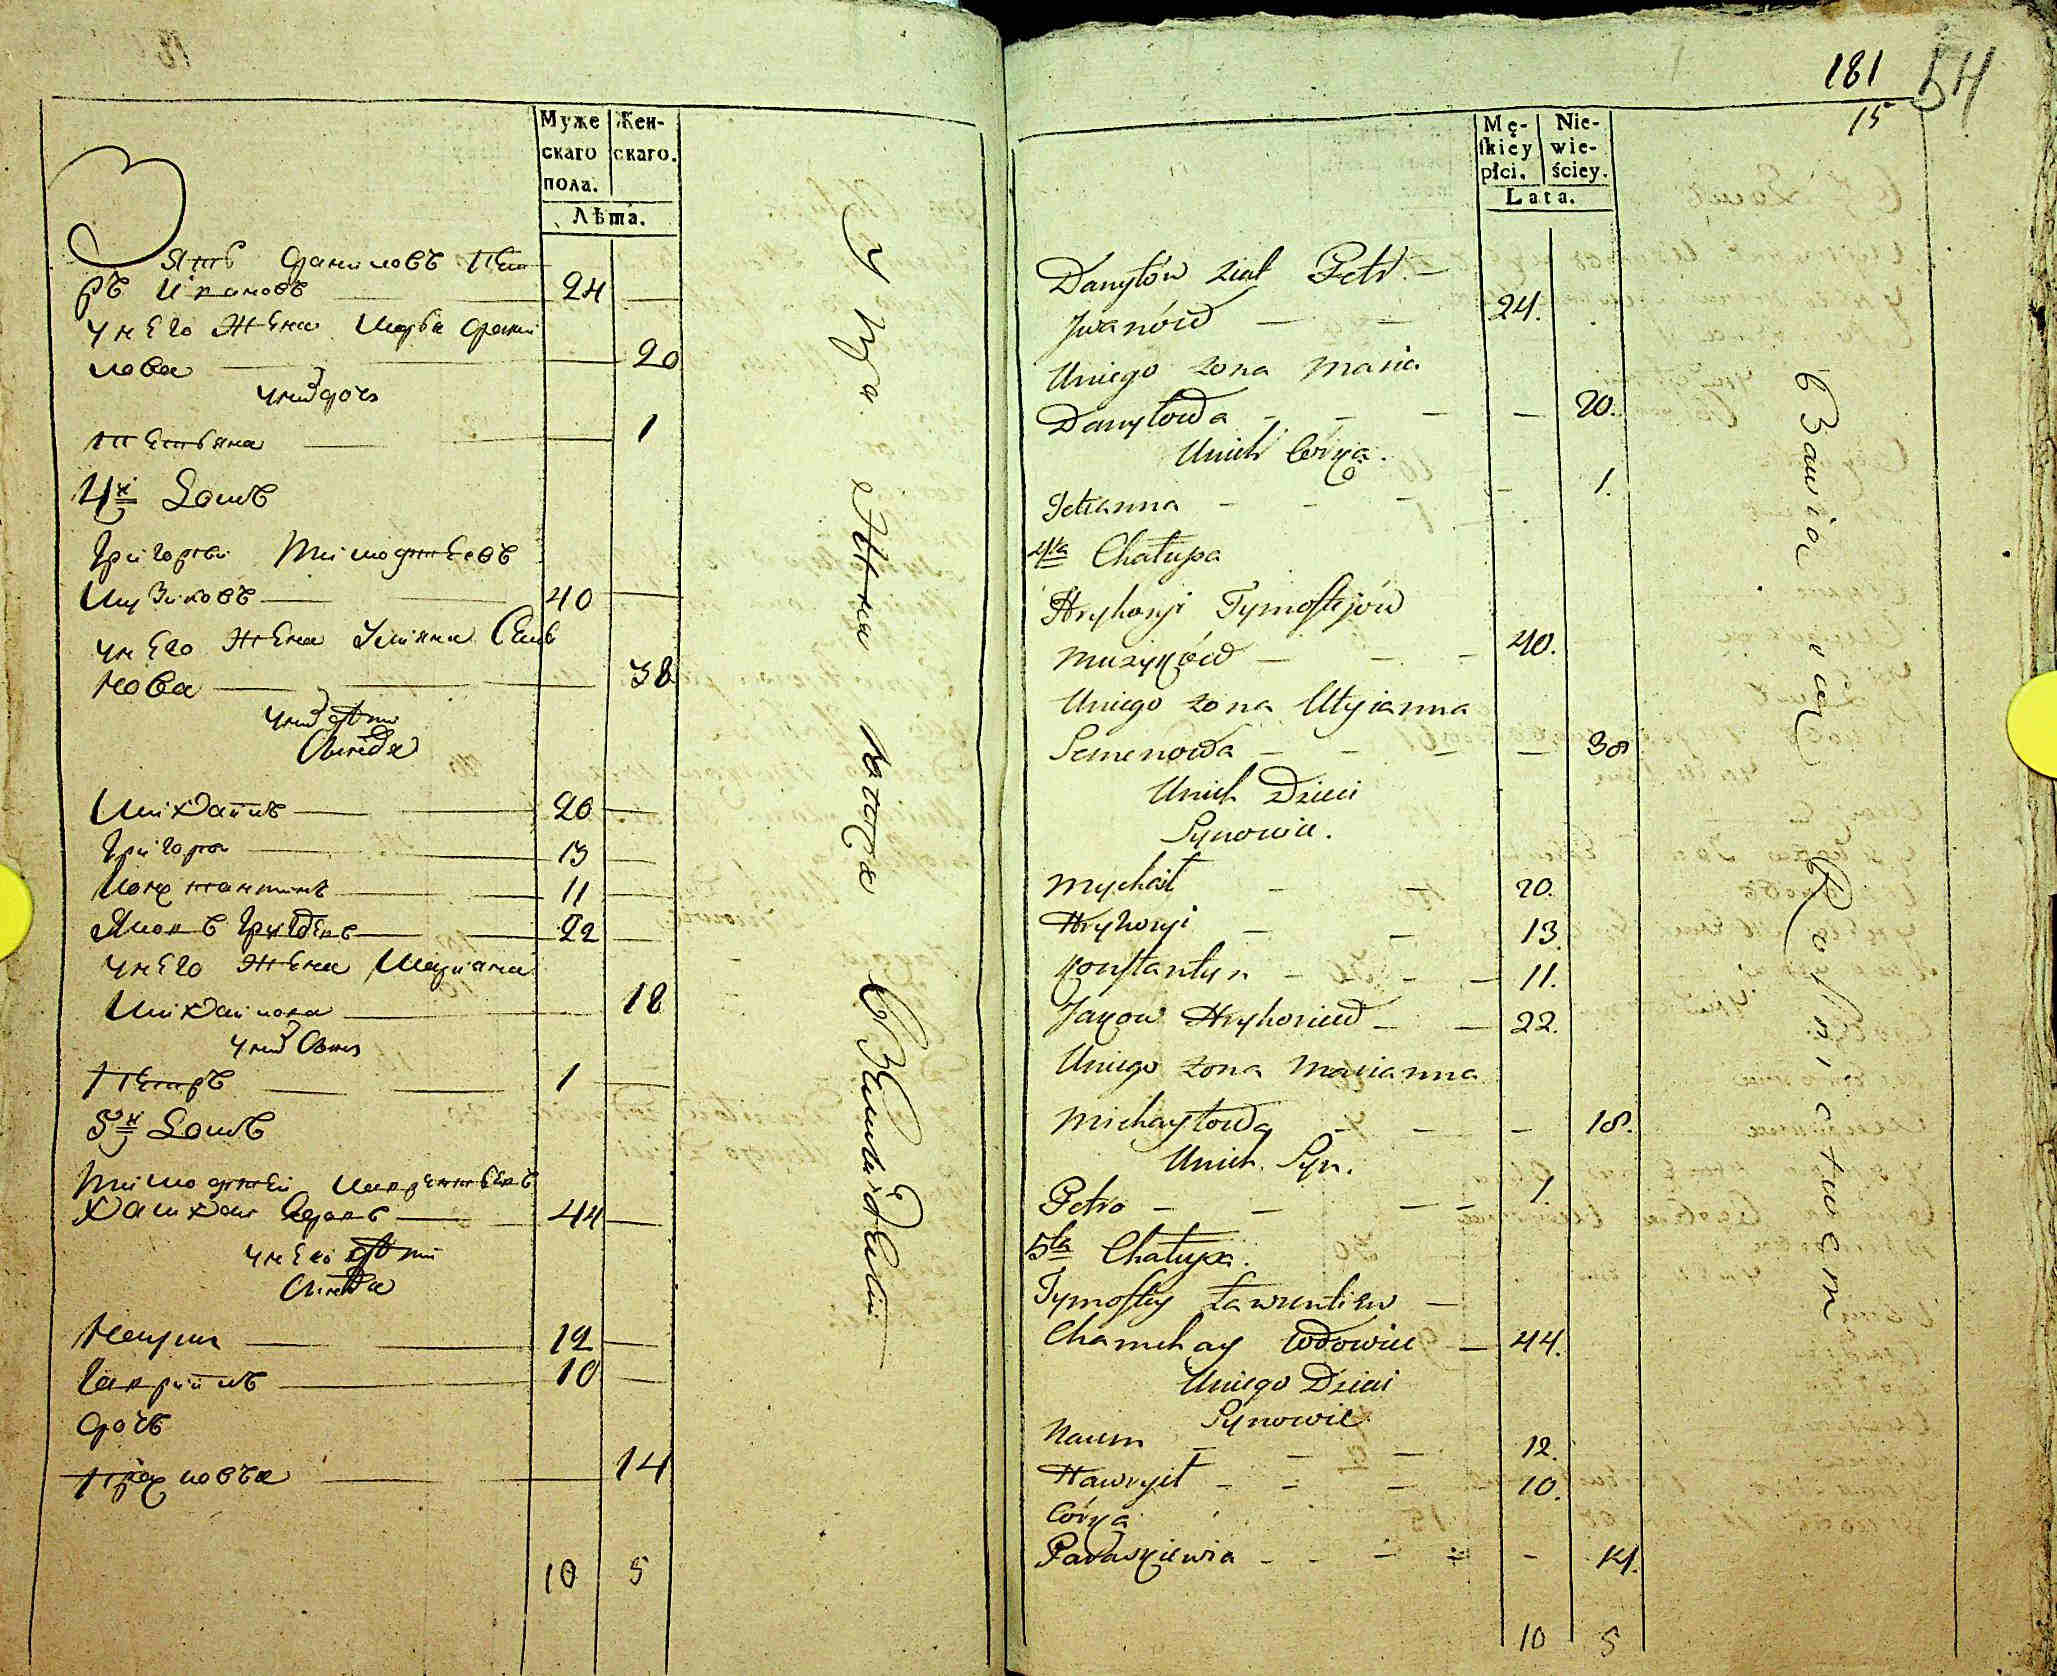 Муже
скаго
пола.
Жен-
скаго.
Лѣта.
Зять Даниловъ Пет
ръ Ивановъ 24
у него жена Марья Дани
лова 20
у них дочь
Тетьяна 1
4я Домъ
Григорей Тимофтеевъ
Музиковъ 40
у него жена Улияна Семе
нова 38
у них дети
Сыновя
Михайлъ 20
Григорей 13
Константинъ 11
Яковъ 22
у него жена Марияна
Михайлова 18
у них Сынъ
Петръ 1
5я Домъ
Тимофтей
44
у него дети
Сыновя
Наумъ 12
Гаврийлъ 10
Дочь
14
10 5
181
54
15
Mę-
skiey
płci.
Nie-
wie-
ściey.
Lata.
Danyłów ziat Petr
Jwanów 24.
Uniego zona Maria
Danyłowa 20.
Unich Córka.
Tetianna 1.
4ta Chałupa
Hryhoryi Tymoftejów
Muzyków 40.
Uniego zona Ulyianna
Semenowa 38
Unich Dzieci
Synowie.
Mychaił 20.
Hryhoryi 13.
Konstantyn 11.
Jakow Hryhoriew 22.
Uniego zona Marianna
Michayłowa 18.
Unich Syn.
Petro 1
5ta Chałupa.
Tymoftey Ławrentiew
Chamchay Wdowiec 44.
Uniego Dzieci
Synowie
Naum 12.
Hawryił 10.
Córka
Paraskiewia 14.
10 5
Bawią się Rolnictwem